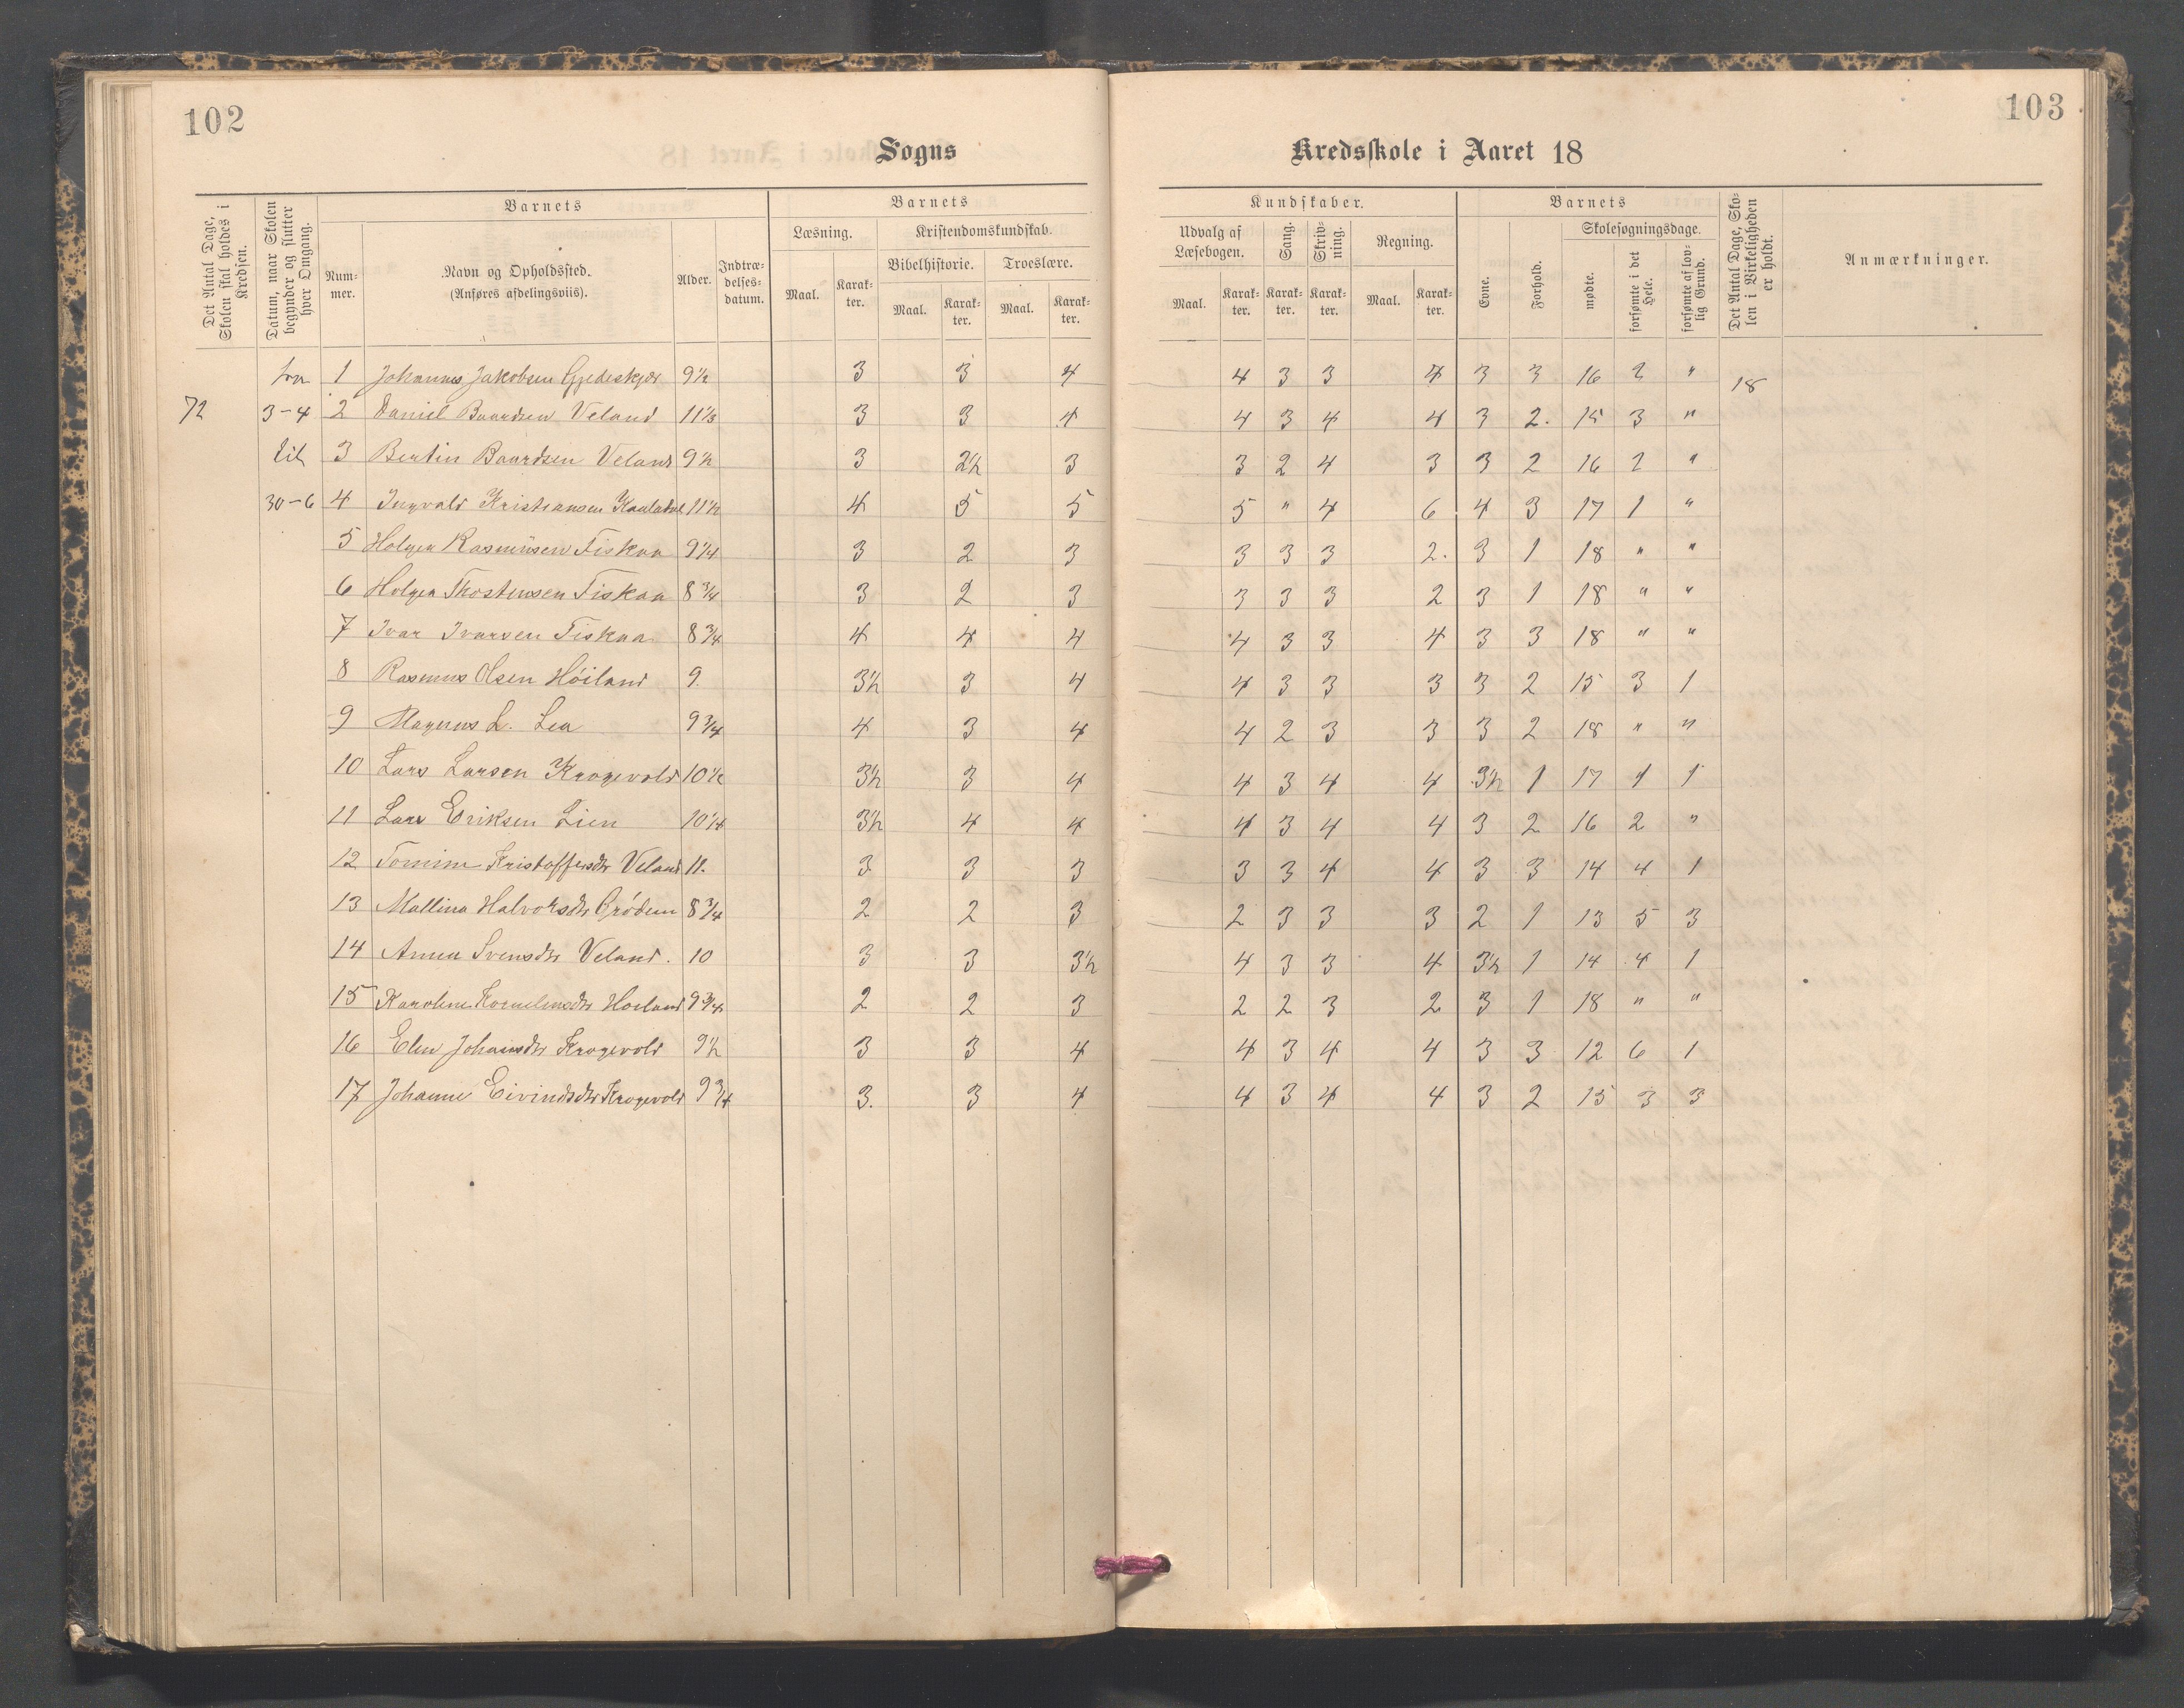 102
Sogns
Det Antal Dage, Skolen skal holdes i Kredsen.
Datum, naar Skolen begynder og slutter hver Omgang.
Barnets
Nummer.
Navn og Opholdssted.
(Anføres afdelingsviis).
Alder.
Indtrædelsesdatum.
Barnets
Læsning.
Kristendomskundskab.
Bibelhistorie.
Troeslære.
Maal. Karakter. Maal. Karakter. Maal. Karakter.
fra 1 Johannes Jakobsen Gjedeskjær 9½ 3 3 4
72 3-4 2 Daniel Baardsen Veland 11⅓ 3 3 4
til 3 Bertin Baardsen Veland 9½ 3 2½ 3
30-6 4 Ingvald Kristiansen 11½ 4 5 5
5 Holger Rasmusen Fiskaa 9¼ 3 2 3
6 Holger Thostensen Fiskaa 8¾ 3 2 3
7 Ivar Ivarsen Fiskaa 8¾ 4 4 4
8 Rasmus Olsen Höiland 9. 3½ 3 4
9 Magnus L. Lea 9¾ 4 3 4
10 Lars Larsen Krogevold 10½ 3½ 3 4
11 Lars Eriksen Lien 10¼ 3½ 4 4
12 Tomine Kristoffersdtr Veland 11. 3 3 3
13 Mallina Halvorsdtr Grödem 8¾ 2 2 3
14 Anna Svensdtr Veland. 10 3 3 3½
15 Karoline Kornelinesdtr Hoiland 9¾ 2 2 3
16 Elen Johansdtr Krogevold 9½ 3 3 4
17 Johanne Eivindsdtr Krogevold 9¾ 3. 3 4
103
Kredsskole i Aaret 18
Kundskaber.
Udvalg af Læsebogen.
Sang.
Skrivning.
Regning.
Maal. Karakter. Karakter. Karakter. Maal. Karakter.
Barnets
Evne.
Forhold.
Skolesøgningsdage.
mødte.
forsømte i det Hele.
forsømte af lovlig Grund.
Det Antal Dage, Skolen i Virkeligheden er holdt.
Anmærkninger.
4 3 3 4 3 3 16 2 " 18
4 3 4 4 3 2. 15 3 "
3 2 4 3 3 2 16 2 "
5 " 4 6 4 3 17 1 "
3 3 3 2. 3 1 18 " "
3 3 3 2 3 1 18 " "
4 3 3 4 3 3 18 " "
4 3 3 3 3 2 15 3 1
4 2 3 3 3 2 18 " "
4 3 4 4 3½ 1 17 1 1
4 3 4 4 3 2 16 2 "
3 3 4 4 3 3 14 4 1
2 3 3 3 2 1 13 5 3
4 3 3 4 3½ 1 14 4 1
2 2 3 2 3 1 18 " "
4 3 4 4 3 3 12 6 1
4 3 4 4 3 2 15 3 3